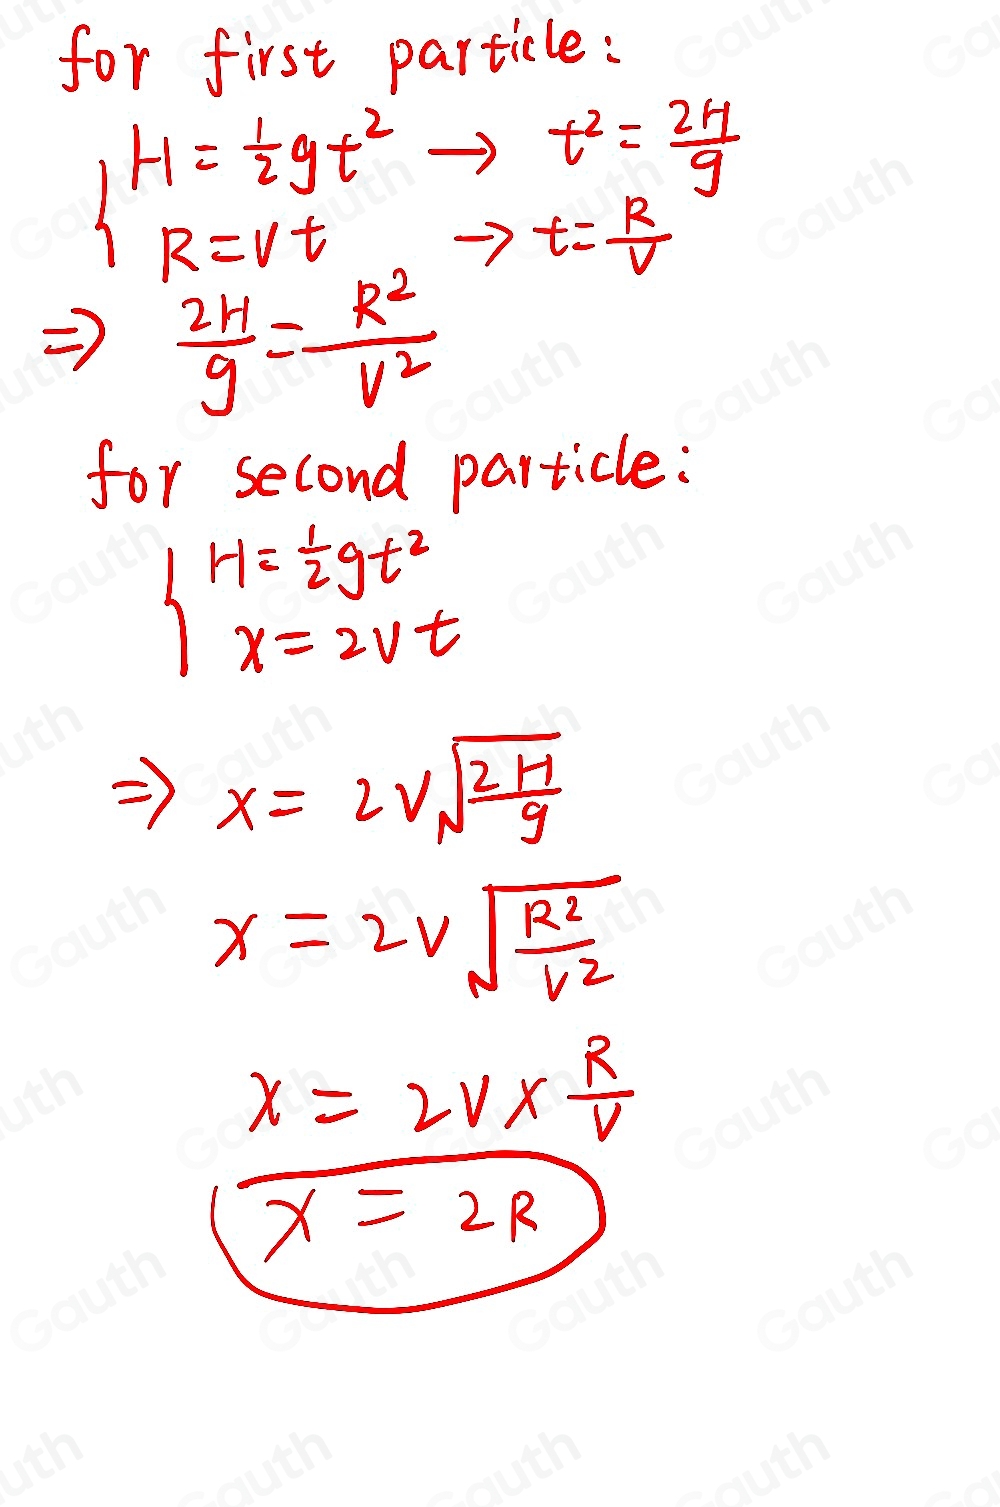 for first particle:
H = 1/2 gt² → t² = 2H/g
R = Vt → t = R/V
⇒ 2H/g = R²/V²
for second particle:
H = 1/2 gt²
x = 2Vt
⇒ x = 2V√(2H/g)
x = 2V√(R²/V²)
x = 2V × R/V
x = 2R
Gauth